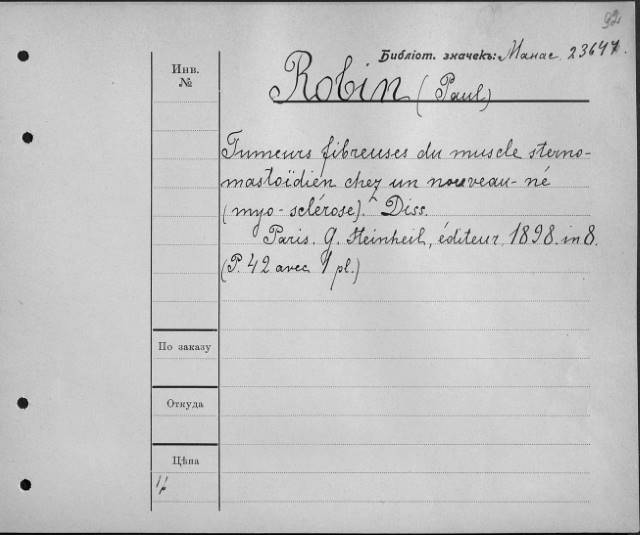 92
Библіот. значекъ: Манас 23647.
Инв.
№
Robin (Paul)
Tumeurs fibreuses du muscle sterno-
mastoïdien chez un nouveau-né
(myo-sclérose). Diss.
Paris. G. Steinheil, éditeur. 1898. in 8.
(P. 42 avec 1 pl.)
По заказу
Откуда
Цѣна